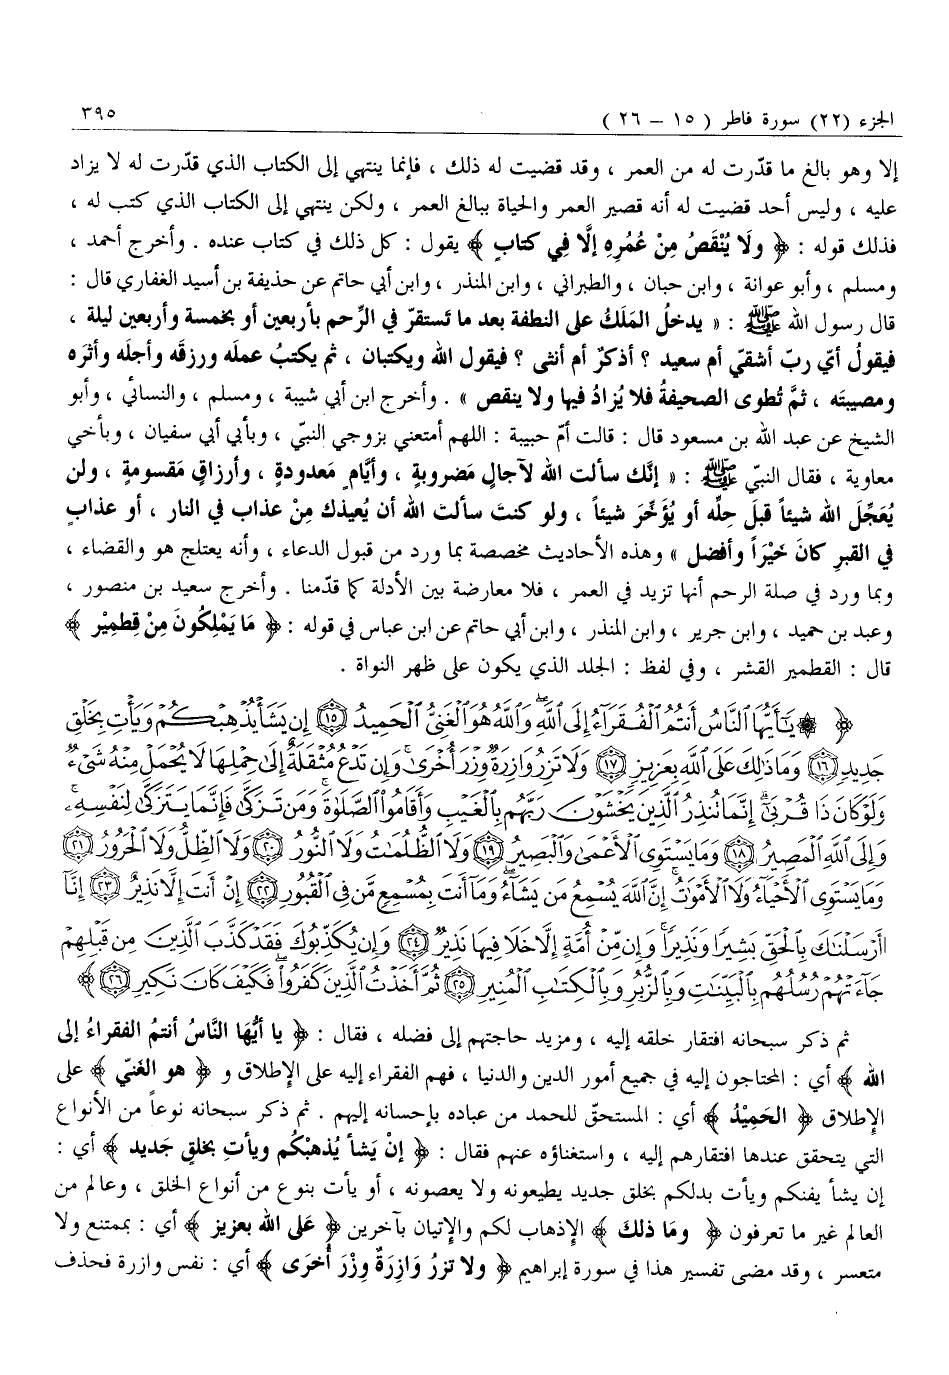 الجزء (٢٢) سورة فاطر ( ١٥ – ٢٦ ) ٣٩٥
إلا وهو بالغ ما قدّرت له من العمر ، وقد قضيت له ذلك ، فإنما ينتهي إلى الكتاب الذي قدّرت له لا يزاد
عليه ، وليس أحد قضيت له أنه قصير العمر والحياة ببالغ العمر ، ولكن ينتهي إلى الكتاب الذي كتب له ،
فذلك قوله : ﴿ ولَا يُنْقَصُ مِنْ عُمُرِهِ إلَّا فِي كتابٍ ﴾ يقول : كل ذلك في كتاب عنده . وأخرج أحمد ،
ومسلم ، وأبو عوانة ، وابن حبان ، والطبراني ، وابن المنذر ، وابن أبي حاتم عن حذيفة بن أسيد الغفاري قال :
قال رسول الله ﷺ : « يدخلُ المَلَكُ على النطفة بعد ما تَستقرّ في الرِّحم بأربعين أو بخمسة وأربعين ليلة ،
فيقولُ أيّ ربّ أشقيّ أم سعيد ؟ أذكرٌ أم أنثى ؟ فيقول الله ويكتبان ، ثم يكتبُ عمله ورزقَه وأجلَه وأثرَه
ومصيبتَه ، ثمَّ تُطوى الصحيفةُ فلا يُزادُ فيها ولا ينقص » . وأخرج ابن أبي شيبة ، ومسلم ، والنسائي ، وأبو
الشيخ عن عبد الله بن مسعود قال : قالت أمّ حبيبة : اللهم أمتعني بزوجي النبيّ ، وبأبي أبي سفيان ، وبأخي
معاوية ، فقال النبيّ ﷺ : « إنَّك سألت الله لآجالٍ مَضروبةٍ ، وأيَّامٍ مَعدودةٍ ، وأرزاقٍ مَقسومةٍ ، ولن
يُعَجِّلَ الله شيئاً قبلَ حِلِّه أو يُؤَخِّرَ شيئاً ، ولو كنتَ سألتَ الله أن يُعيذك مِنْ عذاب في النار ، أو عذابٍ
في القبرِ كانَ خَيْرَاً وأفضل » وهذه الأحاديث مخصصة بما ورد من قبول الدعاء ، وأنه يعتلج هو والقضاء ،
وبما ورد في صلة الرحم أنها تزيد في العمر ، فلا معارضة بين الأدلة كما قدّمنا . وأخرج سعيد بن منصور ،
وعبد بن حميد ، وابن جرير ، وابن المنذر ، وابن أبي حاتم عن ابن عباس في قوله : ﴿ مَا يَمْلِكُونَ مِنْ قِطمِيْر ﴾
قال : القطمير القشر ، وفي لفظ : الجلد الذي يكون على ظهر النواة .
﴿ ۞ يَٰٓأَيُّهَا ٱلنَّاسُ أَنتُمُ ٱلْفُقَرَآءُ إِلَى ٱللَّهِۖ وَٱللَّهُ هُوَ ٱلْغَنِىُّ ٱلْحَمِيدُ ﴿١٥﴾ إِن يَشَأْ يُذْهِبْكُمْ وَيَأْتِ بِخَلْقٍ
جَدِيدٍ ﴿١٦﴾ وَمَا ذَٰلِكَ عَلَى ٱللَّهِ بِعَزِيزٍ ﴿١٧﴾ وَلَا تَزِرُ وَازِرَةٌ وِزْرَ أُخْرَىٰۚ وَإِن تَدْعُ مُثْقَلَةٌ إِلَىٰ حِمْلِهَا لَا يُحْمَلْ مِنْهُ شَىْءٌ
وَلَوْ كَانَ ذَا قُرْبَىٰٓۗ إِنَّمَا تُنذِرُ ٱلَّذِينَ يَخْشَوْنَ رَبَّهُم بِٱلْغَيْبِ وَأَقَامُوا۟ ٱلصَّلَوٰةَۚ وَمَن تَزَكَّىٰ فَإِنَّمَا يَتَزَكَّىٰ لِنَفْسِهِۦۚ
وَإِلَى ٱللَّهِ ٱلْمَصِيرُ ﴿١٨﴾ وَمَا يَسْتَوِى ٱلْأَعْمَىٰ وَٱلْبَصِيرُ ﴿١٩﴾ وَلَا ٱلظُّلُمَٰتُ وَلَا ٱلنُّورُ ﴿٢٠﴾ وَلَا ٱلظِّلُّ وَلَا ٱلْحَرُورُ ﴿٢١﴾
وَمَا يَسْتَوِى ٱلْأَحْيَآءُ وَلَا ٱلْأَمْوَٰتُۚ إِنَّ ٱللَّهَ يُسْمِعُ مَن يَشَآءُۖ وَمَآ أَنتَ بِمُسْمِعٍ مَّن فِى ٱلْقُبُورِ ﴿٢٢﴾ إِنْ أَنتَ إِلَّا نَذِيرٌ ﴿٢٣﴾ إِنَّآ
أَرْسَلْنَٰكَ بِٱلْحَقِّ بَشِيرًا وَنَذِيرًاۚ وَإِن مِّنْ أُمَّةٍ إِلَّا خَلَا فِيهَا نَذِيرٌ ﴿٢٤﴾ وَإِن يُكَذِّبُوكَ فَقَدْ كَذَّبَ ٱلَّذِينَ مِن قَبْلِهِمْ
جَآءَتْهُمْ رُسُلُهُم بِٱلْبَيِّنَٰتِ وَبِٱلزُّبُرِ وَبِٱلْكِتَٰبِ ٱلْمُنِيرِ ﴿٢٥﴾ ثُمَّ أَخَذْتُ ٱلَّذِينَ كَفَرُوا۟ۖ فَكَيْفَ كَانَ نَكِيرِ ﴿٢٦﴾ ﴾
ثم ذكر سبحانه افتقار خلقه إليه ، ومزيد حاجتهم إلى فضله ، فقال : ﴿ يا أيُّهَا النَّاسُ أنتمُ الفقراءُ إلى
الله ﴾ أي : المحتاجون إليه في جميع أمور الدين والدنيا ، فهم الفقراء إليه على الإطلاق و ﴿ هو الغَنيّ ﴾ على
الإطلاق ﴿ الحَمِيْدُ ﴾ أي : المستحقّ للحمد من عباده بإحسانه إليهم . ثم ذكر سبحانه نوعاً من الأنواع
التي يتحقق عندها افتقارهم إليه ، واستغناؤه عنهم فقال : ﴿ إنْ يَشأ يُذهبْكُم ويأتِ بخلقٍ جَديد ﴾ أي :
إن يشأ يفنكم ويأت بدلكم بخلق جديد يطيعونه ولا يعصونه ، أو يأت بنوع من أنواع الخلق ، وعالم من
العالم غير ما تعرفون ﴿ ومَا ذلكَ ﴾ الإذهاب لكم والإتيان بآخرين ﴿ عَلى الله بعزيز ﴾ أي : بممتنع ولا
متعسر ، وقد مضى تفسير هذا في سورة إبراهيم ﴿ ولا تزرُ وَازِرَةٌ وِزْرَ أُخرَى ﴾ أي : نفس وازرة فحذف